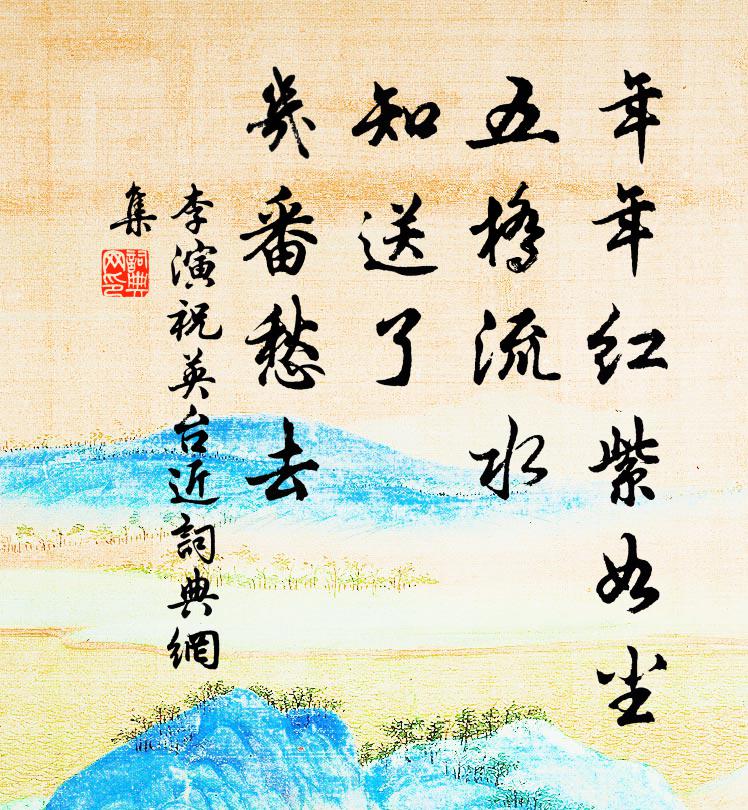 年年红紫如尘
五橋流水
知送了
幾番愁去
李演祝英台近詞典網
集
詞典
网印